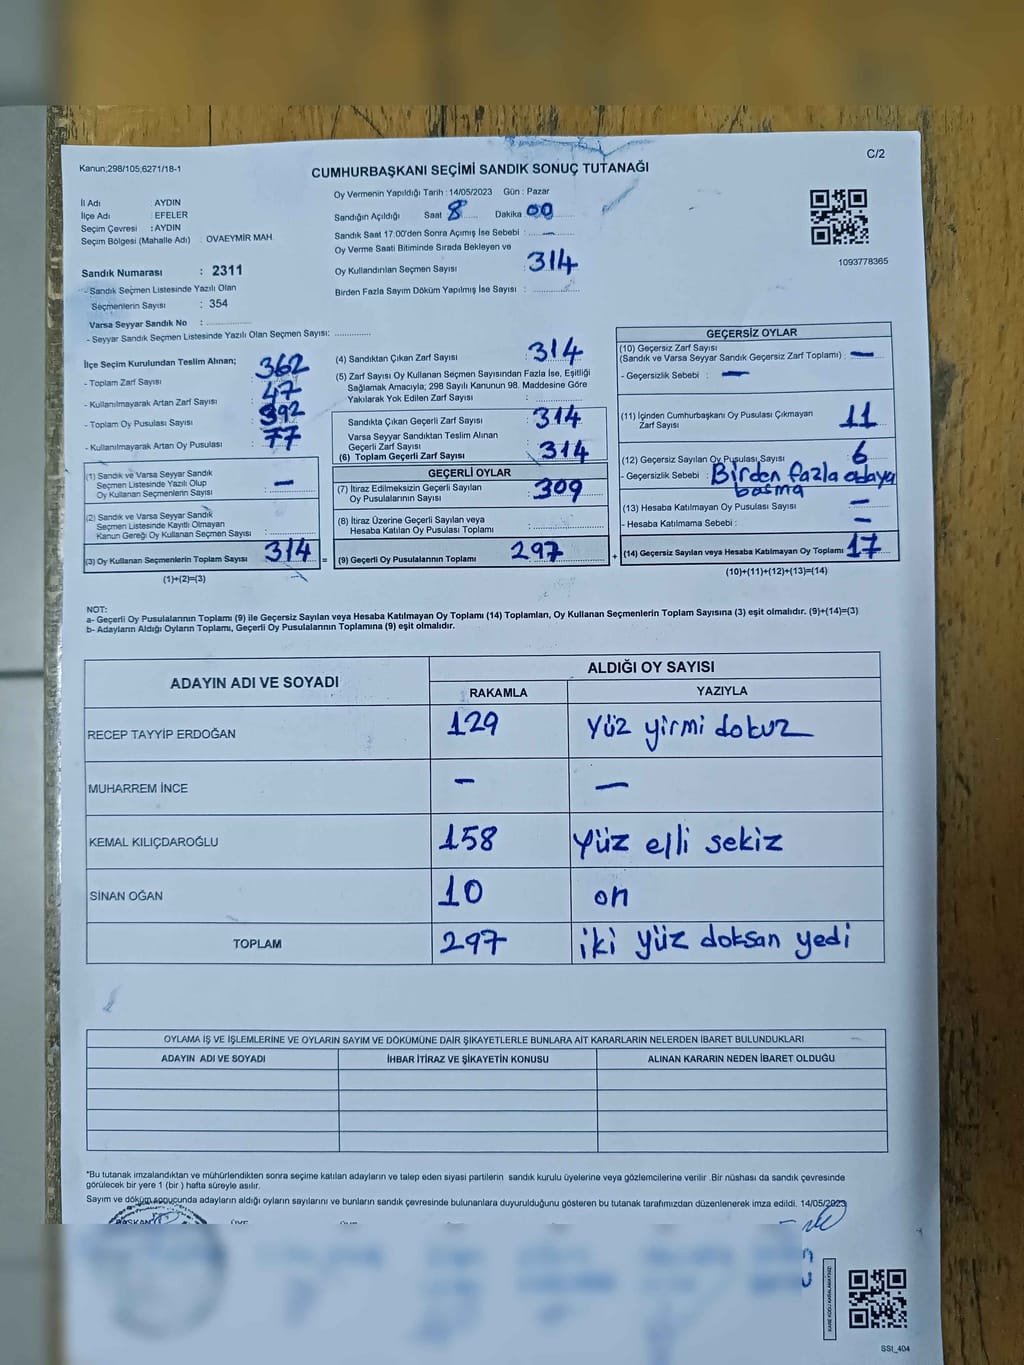 C/2
Kanun;298/105;6271/18-1
CUMHURBAŞKANI SEÇİMİ SANDIK SONUÇ TUTANAĞI
Oy Vermenin Yapıldığı Tarih : 14/05/2023 Gün : Pazar
İl Adı AYDIN
İlçe Adı : EFELER
Seçim Çevresi : AYDIN
Seçim Bölgesi (Mahalle Adı) : OVAEYMİR MAH.
Sandığın Açıldığı Saat 8 Dakika 00
Sandık Saat 17.00'den Sonra Açımış İse Sebebi : —
Oy Verme Saati Bitiminde Sırada Bekleyen ve
Oy Kullandırılan Seçmen Sayısı : 314
Birden Fazla Sayım Döküm Yapılmış İse Sayısı :
1093778365
Sandık Numarası : 2311
- Sandık Seçmen Listesinde Yazılı Olan
Seçmenlerin Sayısı : 354
Varsa Seyyar Sandık No :
- Seyyar Sandık Seçmen Listesinde Yazılı Olan Seçmen Sayısı:
İlçe Seçim Kurulundan Teslim Alınan;
- Toplam Zarf Sayısı 362
- Kullanılmayarak Artan Zarf Sayısı 47
- Toplam Oy Pusulası Sayısı 392
- Kullanılmayarak Artan Oy Pusulası 77
(1) Sandık ve Varsa Seyyar Sandık
Seçmen Listesinde Yazılı Olup
Oy Kullanan Seçmenlerin Sayısı : —
(2) Sandık ve Varsa Seyyar Sandık
Seçmen Listesinde Kayıtlı Olmayan
Kanun Gereği Oy Kullanan Seçmen Sayısı :
(3) Oy Kullanan Seçmenlerin Toplam Sayısı 314 =
(1)+(2)=(3)
(4) Sandıktan Çıkan Zarf Sayısı : 314
(5) Zarf Sayısı Oy Kullanan Seçmen Sayısından Fazla İse, Eşitliği
Sağlamak Amacıyla; 298 Sayılı Kanunun 98. Maddesine Göre
Yakılarak Yok Edilen Zarf Sayısı :
Sandıkta Çıkan Geçerli Zarf Sayısı : 314
Varsa Seyyar Sandıktan Teslim Alınan
Geçerli Zarf Sayısı
(6) Toplam Geçerli Zarf Sayısı : 314
GEÇERLİ OYLAR
(7) İtiraz Edilmeksizin Geçerli Sayılan
Oy Pusulalarının Sayısı : 309
(8) İtiraz Üzerine Geçerli Sayılan veya
Hesaba Katılan Oy Pusulası Toplamı :
(9) Geçerli Oy Pusulalarının Toplamı 297 +
GEÇERSİZ OYLAR
(10) Geçersiz Zarf Sayısı
(Sandık ve Varsa Seyyar Sandık Geçersiz Zarf Toplamı) : —
- Geçersizlik Sebebi : —
(11) İçinden Cumhurbaşkanı Oy Pusulası Çıkmayan
Zarf Sayısı : 11
(12) Geçersiz Sayılan Oy Pusulası Sayısı : 6
- Geçersizlik Sebebi : Birden fazla adaya
basma
(13) Hesaba Katılmayan Oy Pusulası Sayısı —
- Hesaba Katılmama Sebebi : —
(14) Geçersiz Sayılan veya Hesaba Katılmayan Oy Toplamı 17
(10)+(11)+(12)+(13)=(14)
NOT:
a- Geçerli Oy Pusulalarının Toplamı (9) ile Geçersiz Sayılan veya Hesaba Katılmayan Oy Toplamı (14) Toplamları, Oy Kullanan Seçmenlerin Toplam Sayısına (3) eşit olmalıdır. (9)+(14)=(3)
b- Adayların Aldığı Oyların Toplamı, Geçerli Oy Pusulalarının Toplamına (9) eşit olmalıdır.
ADAYIN ADI VE SOYADI ALDIĞI OY SAYISI
RAKAMLA YAZIYLA
RECEP TAYYİP ERDOĞAN 129 Yüz yirmi dokuz
MUHARREM İNCE — —
KEMAL KILIÇDAROĞLU 158 Yüz elli sekiz
SİNAN OĞAN 10 on
TOPLAM 297 iki yüz doksan yedi
OYLAMA İŞ VE İŞLEMLERİNE VE OYLARIN SAYIM VE DÖKÜMÜNE DAİR ŞİKAYETLERLE BUNLARA AİT KARARLARIN NELERDEN İBARET BULUNDUKLARI
ADAYIN ADI VE SOYADI İHBAR İTİRAZ VE ŞİKAYETİN KONUSU ALINAN KARARIN NEDEN İBARET OLDUĞU
*Bu tutanak imzalandıktan ve mühürlendikten sonra seçime katılan adayların ve talep eden siyasi partilerin sandık kurulu üyelerine veya gözlemcilerine verilir .Bir nüshası da sandık çevresinde
görülecek bir yere 1 (bir ) hafta süreyle asılır.
Sayım ve döküm sonucunda adayların aldığı oyların sayılarını ve bunların sandık çevresinde bulunanlara duyurulduğunu gösteren bu tutanak tarafımızdan düzenlenerek imza edildi. 14/05/2023
BAŞKAN ÜYE ÜYE
SSI_404